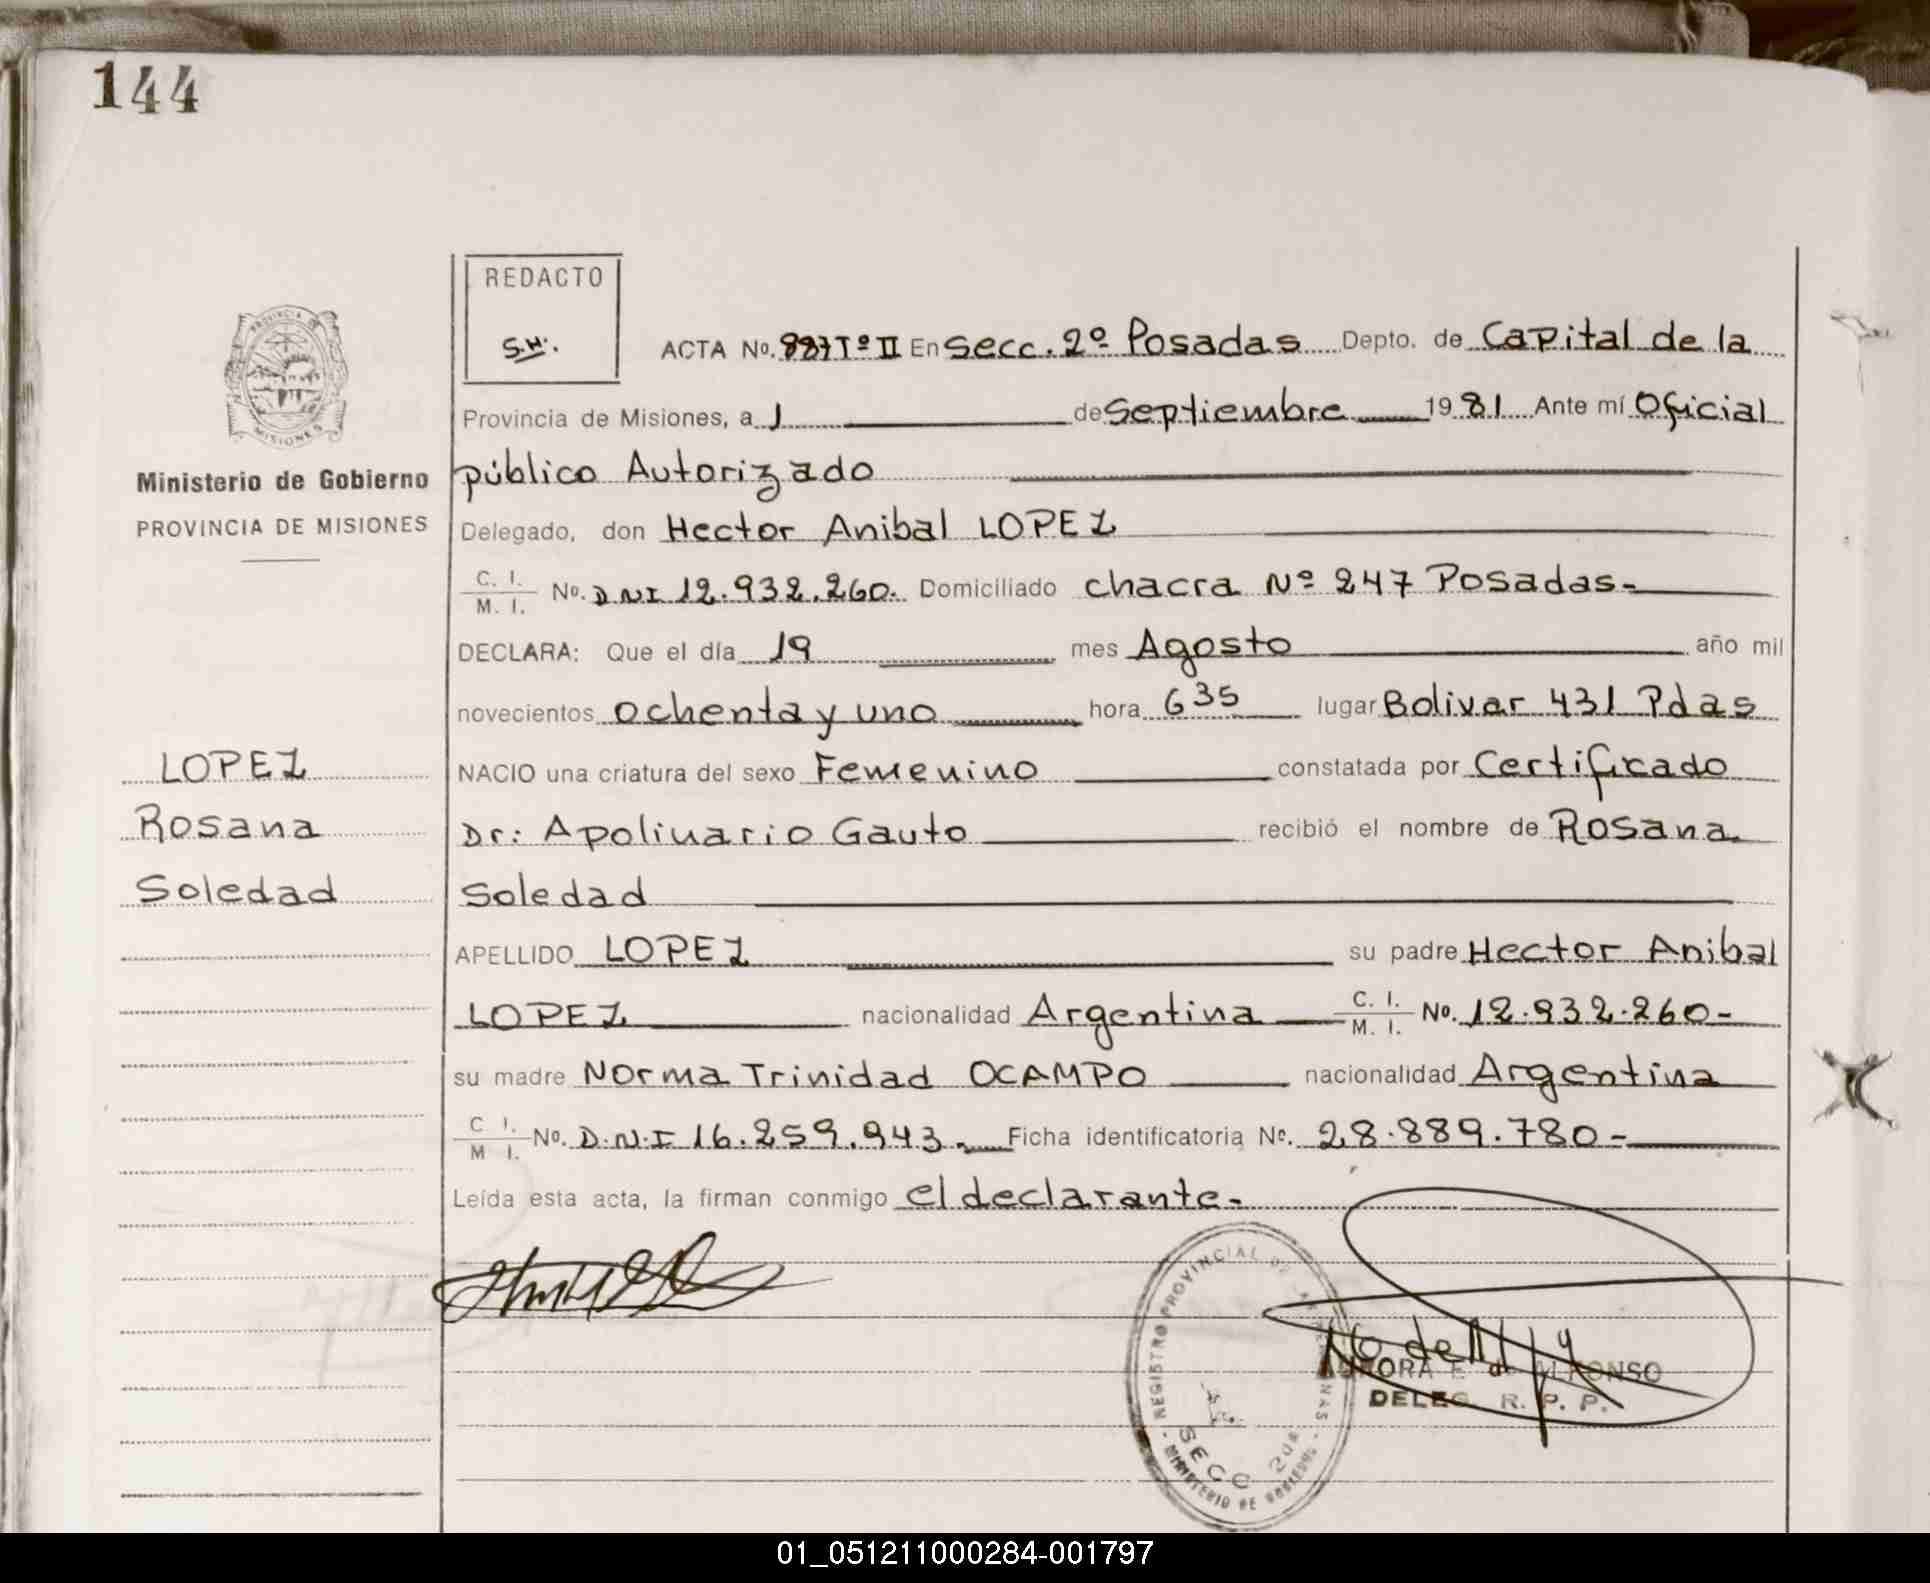 144
REDACTO
S.H.
ACTA No. 887 Tº II En Secc. 2º Posadas Depto. de Capital de la
Provincia de Misiones, a 1 de Septiembre 1981 Ante mí Oficial
Ministerio de Gobierno
público Autorizado
PROVINCIA DE MISIONES
Delegado, don Hector Anibal LOPEZ
C. I. / M. I. No. D.N.I 12.932.260. Domiciliado chacra Nº 247 Posadas-
DECLARA: Que el día 19 mes Agosto año mil
novecientos ochenta y uno hora 6 35 lugar Bolivar 431 Pdas
LOPEZ
NACIO una criatura del sexo Femenino constatada por Certificado
Rosana
Dr: Apolinario Gauto recibió el nombre de Rosana
Soledad
Soledad
APELLIDO LOPEZ su padre Hector Anibal
LOPEZ nacionalidad Argentina C. I. / M. I. No. 12.932.260-
su madre Norma Trinidad OCAMPO nacionalidad Argentina
C I. / M I. No. D.N.I 16.259.943.- Ficha identificatoria No. 28.889.780-
Leída esta acta, la firman conmigo el declarante.-
REGISTRO PROVINCIAL DE LAS PERSONAS
SECC 2da
MINISTERIO DE GOBIERNO
AURORA E. de ALFONSO
DELEG. R. P. P.
01_051211000284-001797